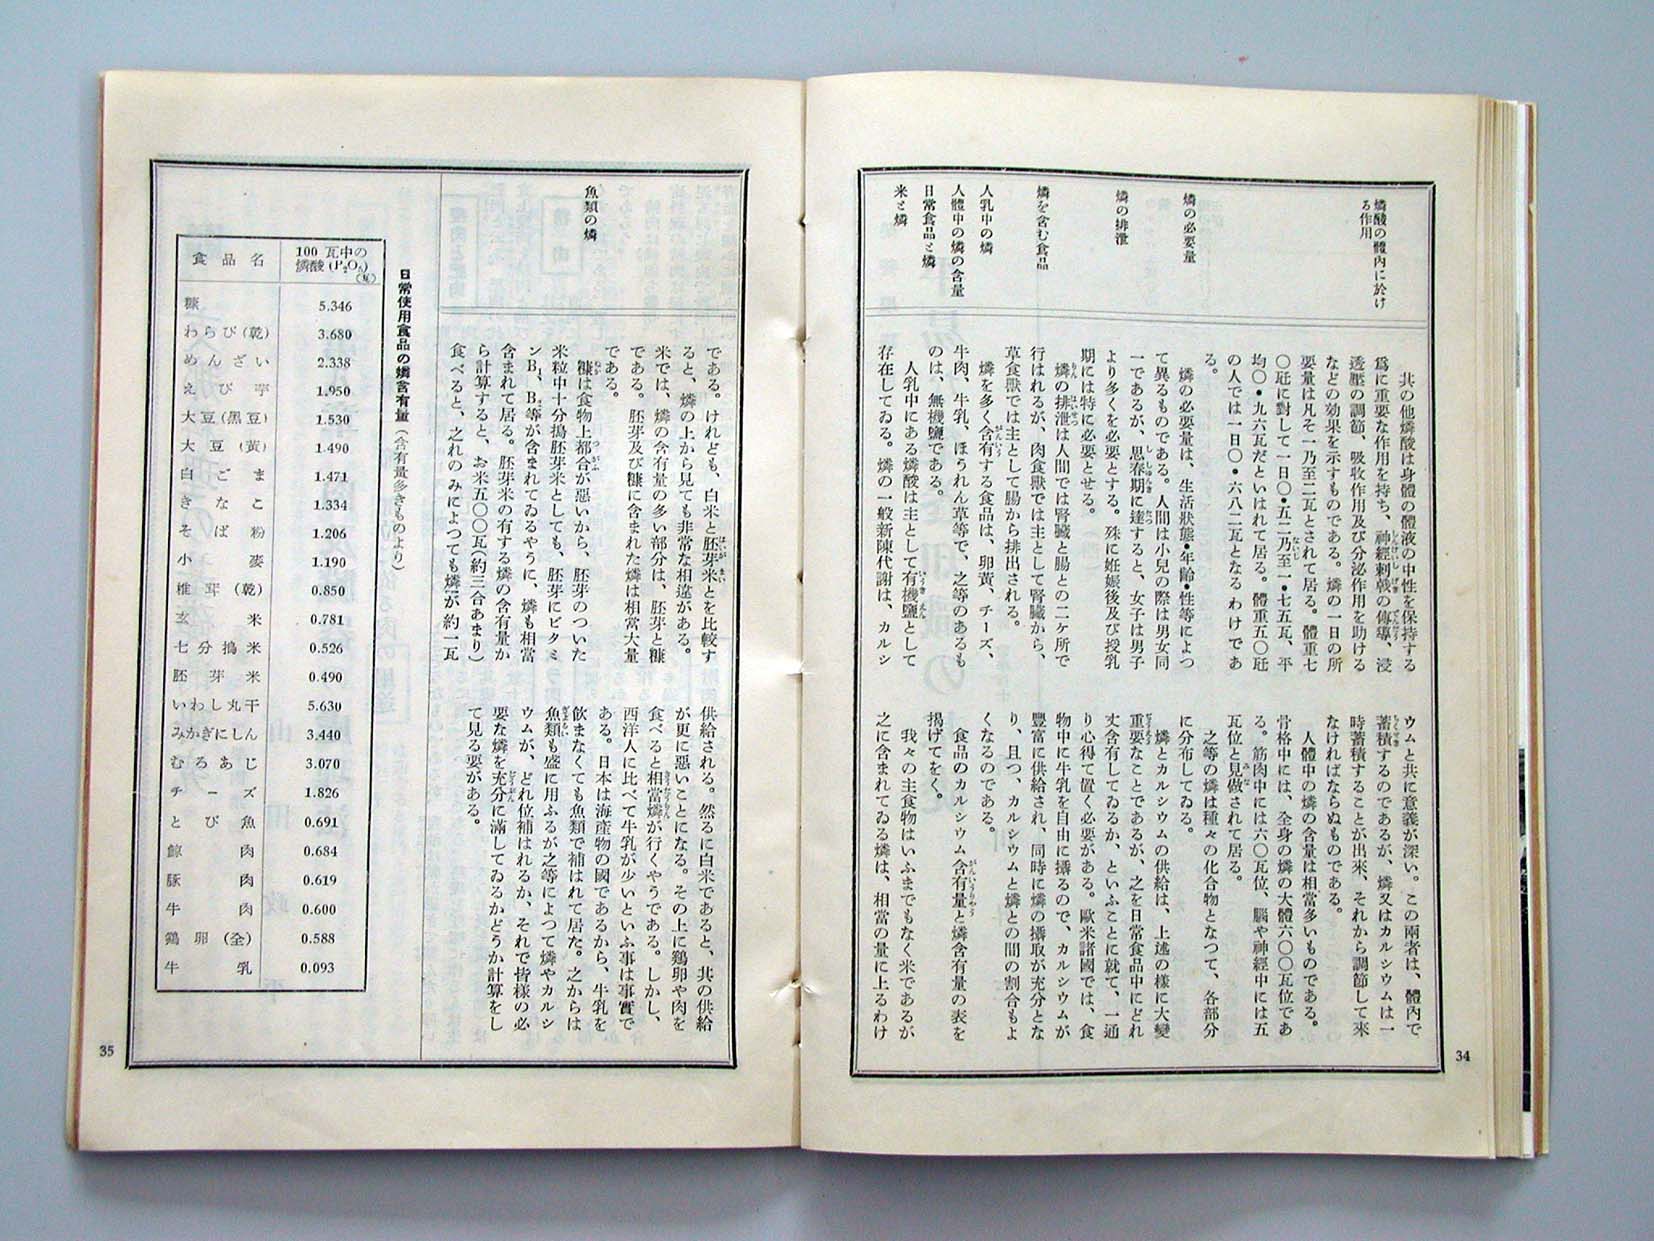 燐酸の體內に於け
る作用
燐の必要量
燐の排泄
燐を含む食品
人乳中の燐
人體中の燐の含量
日常食品と燐
米と燐
共の他燐酸は身體の體液の中性を保持する
爲に重要な作用を持ち、神經刺戟の傳導、浸
透壓の調節、吸收作用及び分泌作用を助ける
などの効果を示すものである。燐の一日の所
要量は凡そ一乃至二瓦とされて居る。體重七
〇瓩に對して一日〇・五二乃至一・七五瓦、平
均〇・九六瓦だといはれて居る。體重五〇瓩
の人では一日〇・六八二瓦となるわけであ
る。
燐の必要量は、生活狀態・年齡・性等によつ
て異るものである。人間は小兒の際は男女同
一であるが、思春期に達すると、女子は男子
より多くを必要とする。殊に妊娠後及び授乳
期には特に必要とせる。
燐の排泄は人間では腎臟と腸との二ケ所で
行はれるが、肉食獸では主として腎臟から、
草食獸では主として腸から排出される。
燐を多く含有する食品は、卵黃、チーズ、
牛肉、牛乳、ほうれん草等で、之等のあるも
のは、無機鹽である。
人乳中にある燐酸は主として有機鹽として
存在してゐる。燐の一般新陳代謝は、カルシ
ウムと共に意義が深い。この兩者は、體內で
蓄積するのであるが、燐又はカルシウムは一
時蓄積することが出來、それから調節して來
なければならぬものである。
人體中の燐の含量は相當多いものである。
骨格中には、全身の燐の大體六〇〇瓦位であ
る。筋肉中には六〇瓦位、腦や神經中には五
瓦位と見做されて居る。
之等の燐は種々の化合物となつて、各部分
に分布してゐる。
燐とカルシウムの供給は、上述の樣に大變
重要なことであるが、之を日常食品中にどれ
丈含有してゐるか、といふことに就て、一通
り心得て置く必要がある。歐米諸國では、食
物中に牛乳を自由に攝るので、カルシウムが
豐富に供給され、同時に燐の攝取が充分とな
り、且つ、カルシウムと燐との間の割合もよ
くなるのである。
食品のカルシウム含有量と燐含有量の表を
揭げてをく。
我々の主食物はいふまでもなく米であるが
之に含まれてゐる燐は、相當の量に上るわけ
34
魚類の燐
である。けれども、白米と胚芽米とを比較す
ると、燐の上から見ても非常な相違がある。
米では、燐の含有量の多い部分は、胚芽と糠
である。胚芽及び糠に含まれた燐は相當大量
である。
糠は食物上都合が惡いから、胚芽のついた
米粒中十分搗胚芽米としても、胚芽にビタミ
ンB₁、B₂等が含まれてゐるやうに、燐も相當
含まれて居る。胚芽米の有する燐の含有量か
ら計算すると、お米五〇〇瓦(約三合あまり)
食べると、之れのみによつても燐が約一瓦
供給される。然るに白米であると、共の供給
が更に惡いことになる。その上に鷄卵や肉を
食べると相當燐が行くやうである。しかし、
西洋人に比べて牛乳が少いといふ事は事實で
ある。日本は海產物の國であるから、牛乳を
飮まなくても魚類で補はれて居た。之からは
魚類も盛に用ふるが之等によつて燐やカルシ
ウムが、どれ位補はれるか、それで皆樣の必
要な燐を充分に滿してゐるかどうか計算をし
て見る要がある。
日常使用食品の燐含有量(含有量多きものより)
食品名 100瓦中の燐酸(P₂O₅)(瓦)
糠 5.346
わらび(乾) 3.680
めんざい 2.338
えび芋 1.950
大豆(黑豆) 1.530
大豆(黃) 1.490
白ごま 1.471
きなこ 1.334
そば粉 1.206
小麥 1.190
椎茸(乾) 0.850
玄米 0.781
七分搗米 0.526
胚芽米 0.490
いわし丸干 5.630
みがきにしん 3.440
むろあじ 3.070
チーズ 1.826
とび魚 0.691
鯨肉 0.684
豚肉 0.619
牛肉 0.600
鷄卵(全) 0.588
牛乳 0.093
35